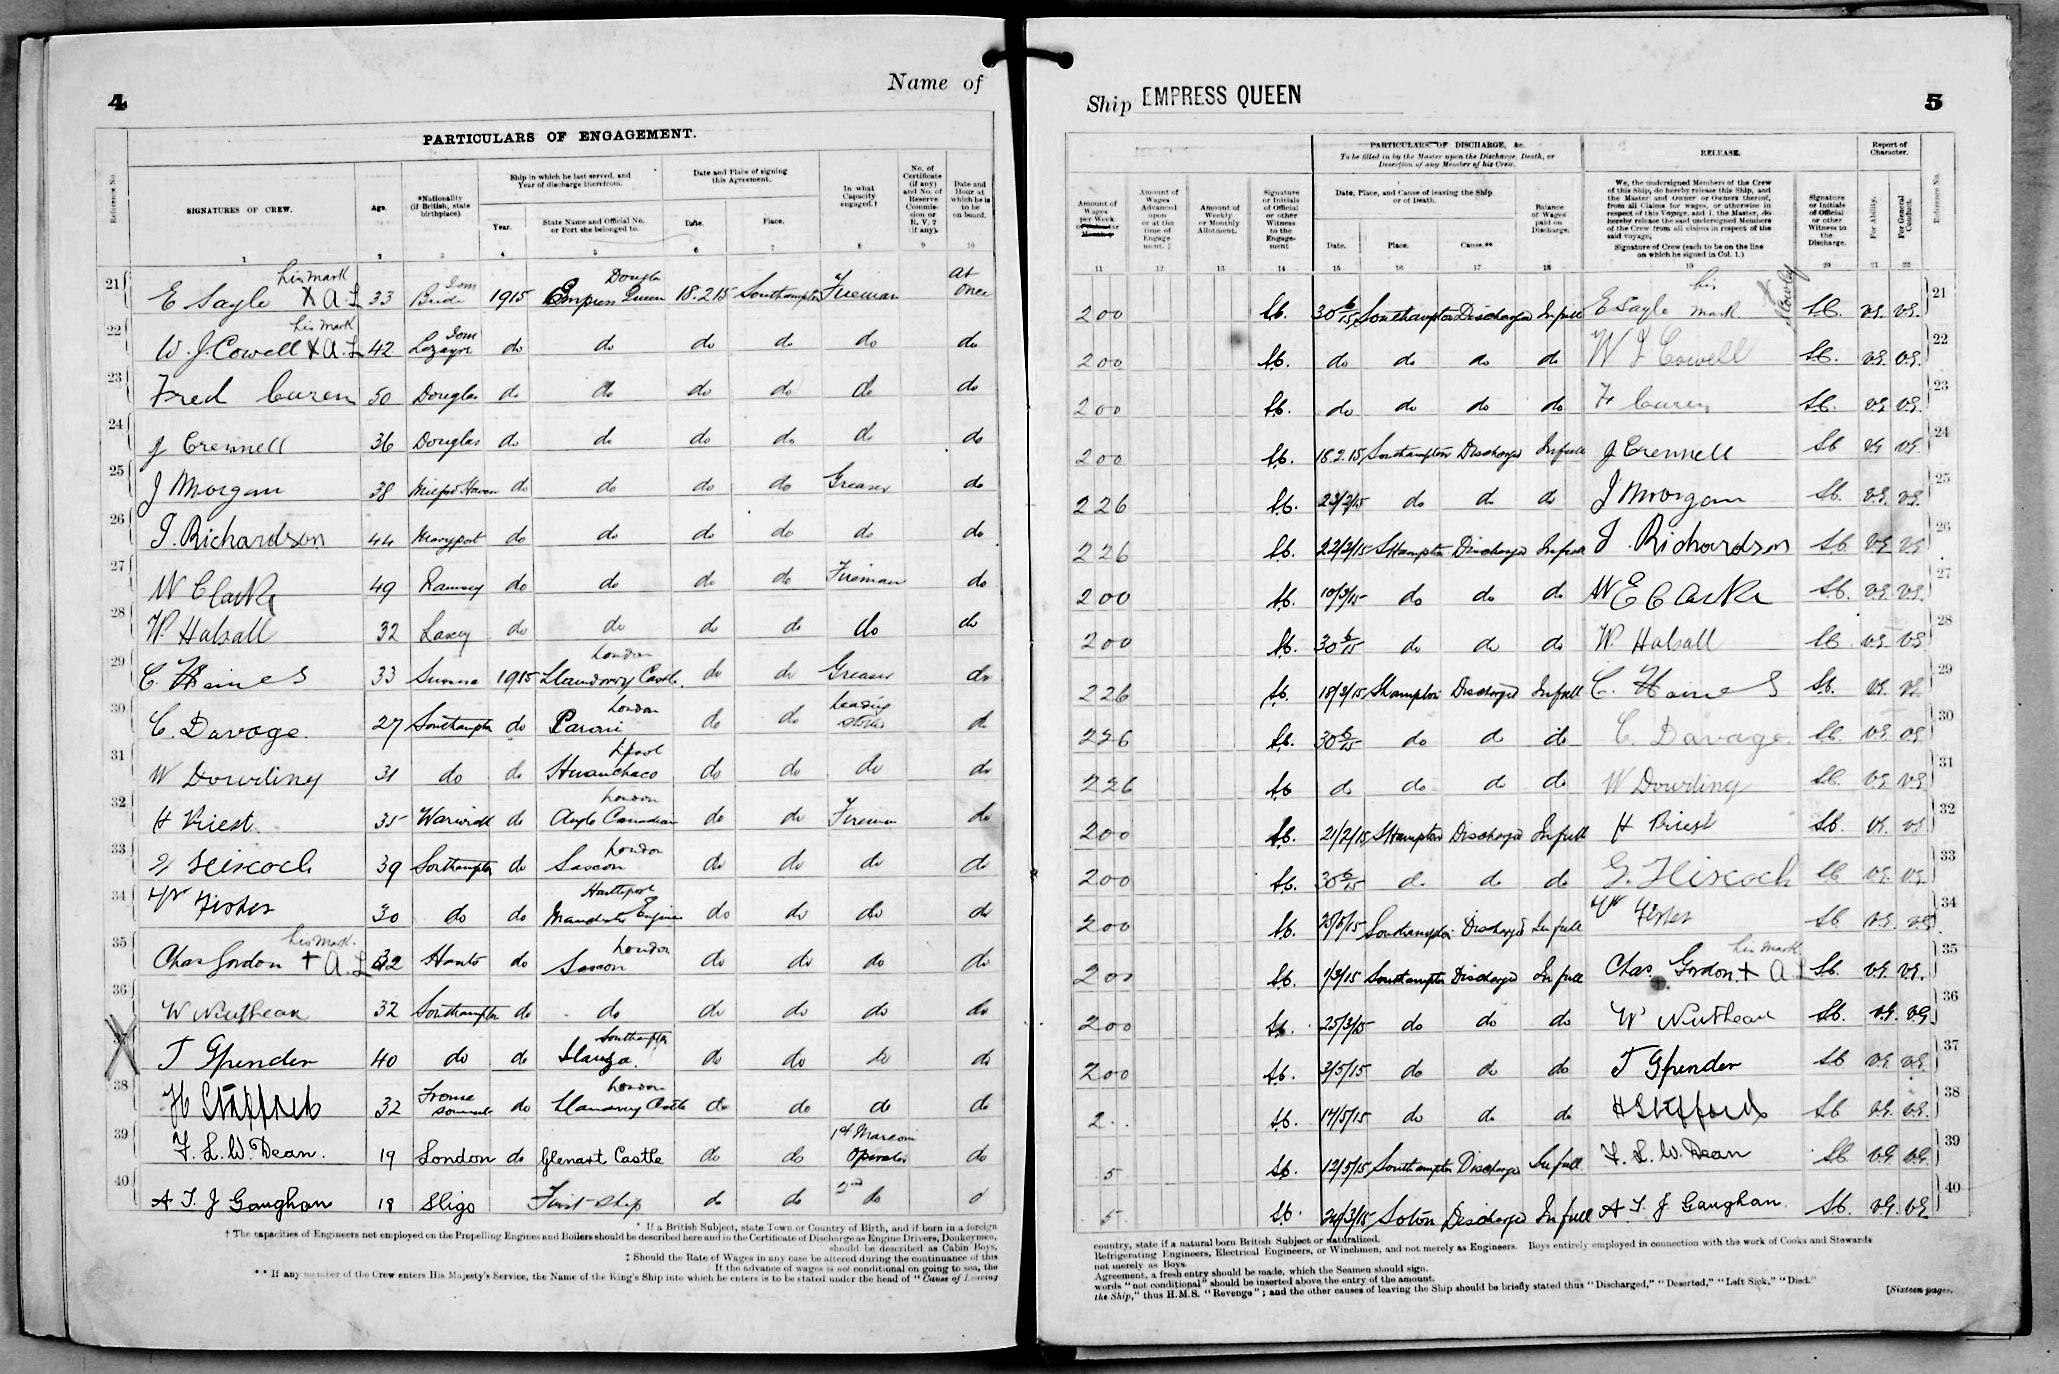 4
Name of
PARTICULARS OF ENGAGEMENT.
Reference No.
SIGNATURES OF CREW.
Age.
*Nationality (if British, state birthplace).
Ship in which he last served, and Year of discharge therefrom.
Year.
State Name and Official No. or Port she belonged to.
Date and Place of signing this Agreement.
Date.
Place.
In what Capacity engaged.†
No. of Certificate (if any) and No. of Reserve Commission or R. V. 2 (if any).
Date and Hour at which he is to be on board.
1 2 3 4 5 6 7 8 9 10
21 E Sayle his mark X A.L 33 Bride Iom 1915 Empress Queen Douglas 18.2.15 Southampton Fireman at once
22 W. J. Cowell his mark X A.L 42 Lezayre Iom do do do do do do
23 Fred Curen 50 Douglas do do do do do do
24 J Crennell 36 Douglas do do do do do do
25 J Morgan 38 Milford Haven do do do do Greaser do
26 J. Richardson 44 Maryport do do do do do do
27 W Clarke 49 Ramsey do do do do Fireman do
28 W. Halsall 32 Laxey do do do do do do
29 C. Haines 33 1915 Llandovery Castle London do do Greaser do
30 C. Davage. 27 Southampton do London do do Leading do
31 W Dowding 31 do do Huanchaco Lpool do do do do
32 H Priest. 35 Warwick do Anglo Canadian London do do Fireman do
33 G Hiscock 39 Southampton do Saxon London do do do do
34 W Fisher 30 do do Manchester Engineer Hartlepool do do do do
35 Chas Gordon his mark + A.L 32 Hants do Saxon London do do do do
36 W Nutbean 32 Southampton do do do do do do
37 T Spender 40 do do Southampton do do do do
38 H Stafford 32 Frome Somerset do Llandovery Castle London do do do do
39 F. L. W. Dean. 19 London do Glenart Castle do do 1st Marconi Operator do
40 A T. J Gaughan 18 Sligo First ship do do 2nd do d
* If a British Subject, state Town or Country of Birth, and if born in a foreign
† The capacities of Engineers not employed on the Propelling Engines and Boilers should be described here and in the Certificate of Discharge as Engine Drivers, Donkeymen,
should be described as Cabin Boys,
‡ Should the Rate of Wages in any case be altered during the continuance of this
If the advance of wages is not conditional on going to sea, the
** If any member of the Crew enters His Majesty's Service, the Name of the King's Ship into which he enters is to be stated under the head of "Cause of Leaving
Ship EMPRESS QUEEN
5
Amount of Wages per Week
Amount of Wages Advanced upon or at the time of Engagement. ‡
Amount of Weekly or Monthly Allotment.
Signature or Initials of Official or other Witness to the Engagement
PARTICULARS OF DISCHARGE, &c.
To be filled in by the Master upon the Discharge, Death, or Desertion of any Member of his Crew.
Date, Place, and Cause of leaving the Ship or of Death.
Date. Place. Cause.**
Balance of Wages paid on Discharge.
RELEASE.
We, the undersigned Members of the Crew of this Ship, do hereby release this Ship, and the Master and Owner or Owners thereof, from all Claims for wages, or otherwise in respect of this Voyage, and I, the Master, do hereby release the said undersigned Members of the Crew from all claims in respect of the said voyage.
Signature of Crew (each to be on the line on which he signed in Col. 1.)
Signature or Initials of Official or other Witness to the Discharge.
Report of Character.
For Ability.
For General Conduct.
Reference No.
11 12 13 14 15 16 17 18 19 20 21 22
200 30/6/15 Southampton Discharged In full E Sayle his mark X VG. VG. 21
200 do do do do W J Cowell VG. VG. 22
200 do do do do F Curen VG VG. 23
200 18.2.15 Southampton Discharged In full J Crennell VG VG. 24
226 22/2/15 do do do J Morgan VG. VG. 25
226 22/2/15 SHampton Discharged In full J. Richardson VG VG 26
200 10/3/15 do do do W E Clarke VG. VG. 27
200 30/6/15 do do do W. Halsall VG. VG. 28
226 18/3/15 SHampton Discharged In full C. Haines VG. VG. 29
226 30/6/15 do do do C. Davage. VG. VG 30
226 do do do do W Dowding VG. VG. 31
200 21/2/15 SHampton Discharged In full H Priest VG. VG 32
200 30/6/15 do do do G. Hiscock VG. VG. 33
200 Southampton Discharged In full W Fisher VG. VG. 34
200 1/3/15 Southampton Discharged In full Chas Gordon his mark + A L VG. VG. 35
200 25/3/15 do do do W Nutbean VG. VG 36
200 3/5/15 do do do T Spender VG VG. 37
2.. 17/5/15 do do do H Stafford VG. VG. 38
5 12/5/15 Southampton Discharged In full F. L. W. Dean VG. VG. 39
5 24/3/15 Soton Discharged In full A. T. J Gaughan VG. VG. 40
country, state if a natural born British Subject or naturalized.
Refrigerating Engineers, Electrical Engineers, or Winchmen, and not merely as Engineers. Boys entirely employed in connection with the work of Cooks and Stewards
not merely as Boys.
Agreement, a fresh entry should be made, which the Seamen should sign.
words "not conditional" should be inserted above the entry of the amount.
the Ship," thus H.M.S. "Revenge"; and the other causes of leaving the Ship should be briefly stated thus "Discharged," "Deserted," "Left Sick," "Died."
[Sixteen pages.